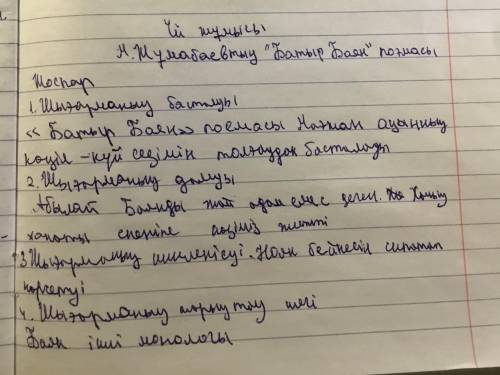 Үй жұмысы
М. Жұмабаевтың "Батыр Баян" поэмасы
Жоспар
1. Шығарманың басталуы
«Батыр Баян» поемасы Мағжан ақынның
көңіл-күй сезімін толғаудан басталады
2. Шығарманың дамуы
Абылай Баянды жай адам емес деген.
3. Шығарманың шиеленісуі. Ноян бейнесін сипаттап
көрсетуі
4. Шығарманың шарықтау шегі
Баян ішкі монологы